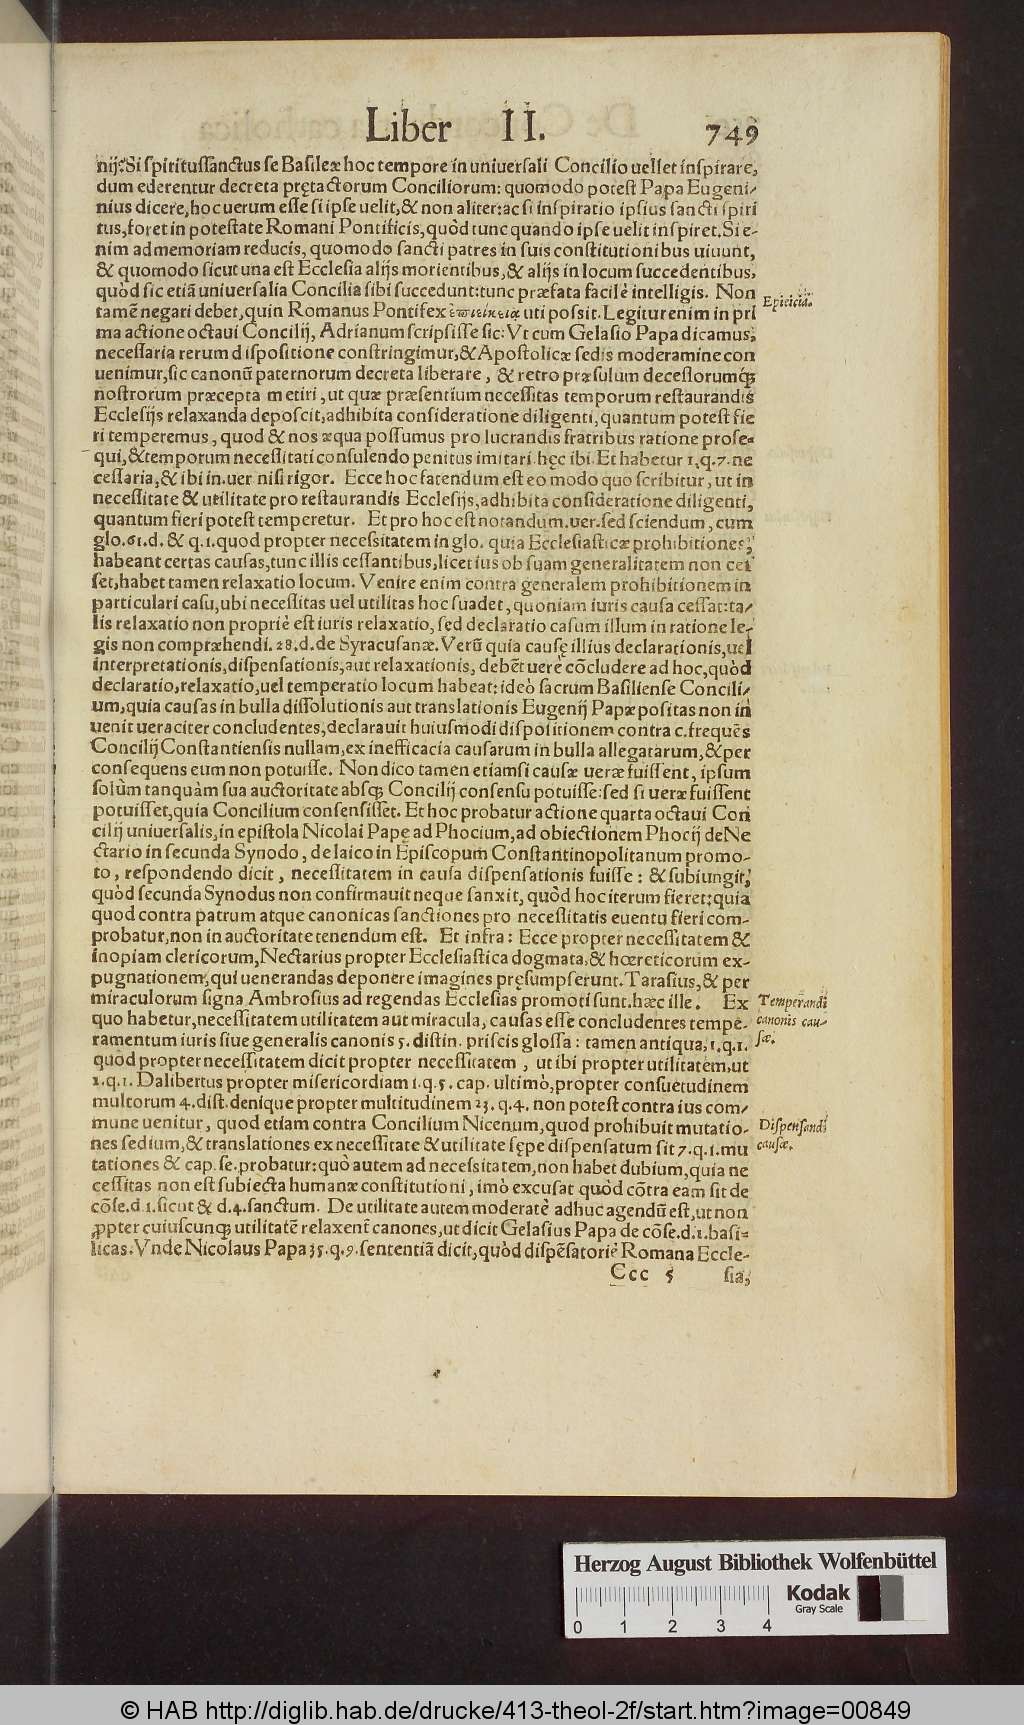 Liber II. 749
nij: Si spiritussanctus se Basileæ hoc tempore in uniuersali Concilio uellet inspirare,
dum ederentur decreta prętactorum Conciliorum: quomodo potest Papa Eugeni-
nius dicere, hoc uerum esse si ipse uelit, & non aliter: ac si inspiratio ipsius sancti spiri
tus, foret in potestate Romani Pontificis, quòd tunc quando ipse uelit inspiret. Si e-
nim ad memoriam reducis, quomodo sancti patres in suis constitutionibus uiuunt,
& quomodo sicut una est Ecclesia alijs morientibus, & alijs in locum succedentibus,
quòd sic etiã uniuersalia Concilia sibi succedunt: tunc præfata facilè intelligis. Non
Epieicia.
tamẽ negari debet, quin Romanus Pontifex ἐπιεικείᾳ uti possit. Legitur enim in pri
ma actione octaui Concilij, Adrianum scripsisse sic: Vt cum Gelasio Papa dicamus,
necessaria rerum dispositione constringimur, & Apostolicæ sedis moderamine con
uenimur, sic canonũ paternorum decreta liberare, & retro præsulum decessorumq́;
nostrorum præcepta metiri, ut quæ præsentium necessitas temporum restaurandis
Ecclesijs relaxanda deposcit, adhibita consideratione diligenti, quantum potest fie
ri temperemus, quod & nos æqua possumus pro lucrandis fratribus ratione prose-
qui, & temporum necessitati consulendo penitus imitari. hęc ibi. Et habetur 1. q. 7. ne
cessaria, & ibi in. uer nisi rigor. Ecce hoc fatendum est eo modo quo scribitur, ut in
necessitate & utilitate pro restaurandis Ecclesijs, adhibita consideratione diligenti,
quantum fieri potest temperetur. Et pro hoc est notandum. uer. sed sciendum, cum
glo. 61. d. & q. 1. quod propter necessitatem in glo. quia Ecclesiasticæ prohibitiones,
habeant certas causas, tunc illis cessantibus, licet ius ob suam generalitatem non ces
set, habet tamen relaxatio locum. Venire enim contra generalem prohibitionem in
particulari casu, ubi necessitas uel utilitas hoc suadet, quoniam iuris causa cessat: ta-
lis relaxatio non propriè est iuris relaxatio, sed declaratio casum illum in ratione le-
gis non compræhendi. 28. d. de Syracusanæ. Verũ quia causę illius declarationis, uel
interpretationis, dispensationis, aut relaxationis, debẽt uerè cõcludere ad hoc, quòd
declaratio, relaxatio, uel temperatio locum habeat: ideò sacrum Basiliense Concili-
um, quia causas in bulla dissolutionis aut translationis Eugenij Papæ positas non in
uenit ueraciter concludentes, declarauit huiusmodi dispositionem contra c. frequẽs
Concilij Constantiensis nullam, ex inefficacia causarum in bulla allegatarum, & per
consequens eum non potuisse. Non dico tamen etiamsi causæ ueræ fuissent, ipsum
solùm tanquàm sua auctoritate absq; Concilij consensu potuisse: sed si ueræ fuissent
potuisset, quia Concilium consensisset. Et hoc probatur actione quarta octaui Con
cilij uniuersalis, in epistola Nicolai Papę ad Phocium, ad obiectionem Phocij de Ne
ctario in secunda Synodo, de laico in Episcopum Constantinopolitanum promo-
to, respondendo dicit, necessitatem in causa dispensationis fuisse: & subiungit,
quòd secunda Synodus non confirmauit neque sanxit, quòd hoc iterum fieret: quia
quod contra patrum atque canonicas sanctiones pro necessitatis euentu fieri com-
probatur, non in auctoritate tenendum est. Et infra: Ecce propter necessitatem &
inopiam clericorum, Nectarius propter Ecclesiastica dogmata, & hœreticorum ex-
pugnationem, qui uenerandas deponere imagines pręsumpserunt. Tarasius, & per
miraculorum signa Ambrosius ad regendas Ecclesias promoti sunt. hæc ille. Ex
Temperandi
canonis cau-
sæ.
quo habetur, necessitatem utilitatem aut miracula, causas esse concludentes tempe-
ramentum iuris siue generalis canonis 5. distin. priscis glossa: tamen antiqua, 1. q. 1.
quòd propter necessitatem dicit propter necessitatem, ut ibi propter utilitatem, ut
1. q. 1. Dalibertus propter misericordiam 1. q. 5. cap. ultimò, propter consuetudinem
multorum 4. dist. denique propter multitudinem 23. q. 4. non potest contra ius com-
mune uenitur, quod etiam contra Concilium Nicenum, quod prohibuit mutatio-
Dispensandi
causæ.
nes sedium, & translationes ex necessitate & utilitate sępe dispensatum sit 7. q. 1. mu
tationes & cap. se. probatur: quò autem ad necessitatem, non habet dubium, quia ne
cessitas non est subiecta humanæ constitutioni, imò excusat quòd cõtra eam sit de
cõse. d. 1. sicut & d. 4. sanctum. De utilitate autem moderatè adhuc agendũ est, ut non
ꝓpter cuiuscunq; utilitatẽ relaxent̃ canones, ut dicit Gelasius Papa de cõse. d. 1. basi-
licas. Vnde Nicolaus Papa 35. q. 9. sententiã dicit, quòd dispẽsatoriè Romana Eccle-
Ccc 5 sia,
Herzog August Bibliothek Wolfenbüttel
Kodak
Gray Scale
0 1 2 3 4
© HAB http://diglib.hab.de/drucke/413-theol-2f/start.htm?image=00849